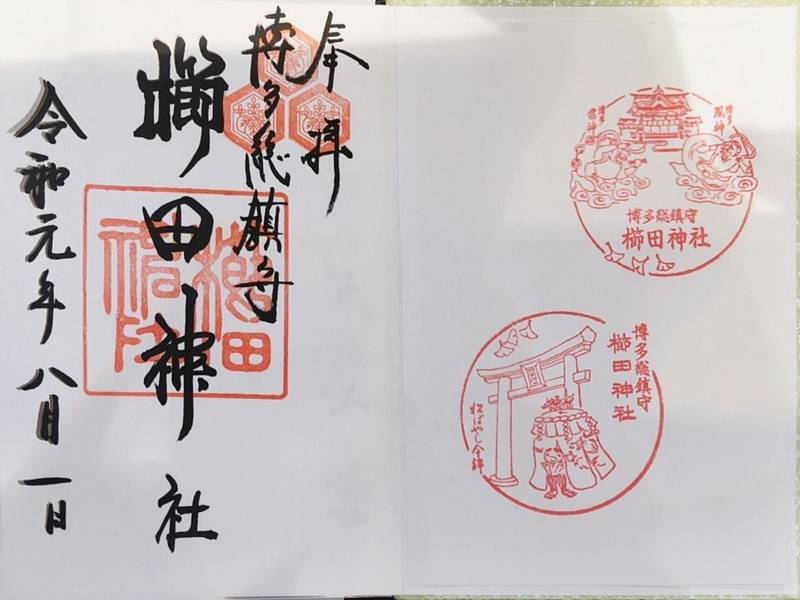 奉拝
博多総鎮守
櫛田神社
令和元年八月一日
風神
雷神
博多総鎮守
櫛田神社
博多総鎮守
櫛田神社
松ばやし